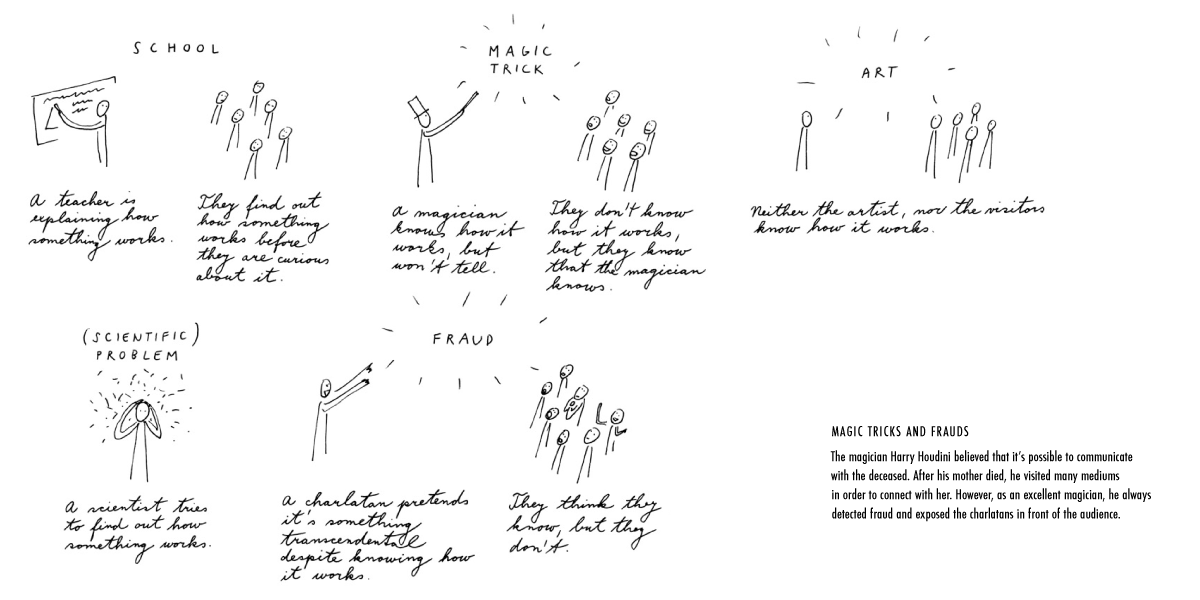 SCHOOL
A teacher is
explaining how
something works.
They find out
how something
works before
they are curious
about it.
MAGIC
TRICK
A magician
knows how it
works, but
won't tell.
They don't know
how it works,
but they know
that the magician
knows.
ART
Neither the artist, nor the visitors
know how it works.
(SCIENTIFIC)
PROBLEM
A scientist tries
to find out how
something works.
FRAUD
A charlatan pretends
it's something
transcendental
despite knowing how
it works.
They think they
know, but they
don't.
MAGIC TRICKS AND FRAUDS
The magician Harry Houdini believed that it's possible to communicate
with the deceased. After his mother died, he visited many mediums
in order to connect with her. However, as an excellent magician, he always
detected fraud and exposed the charlatans in front of the audience.